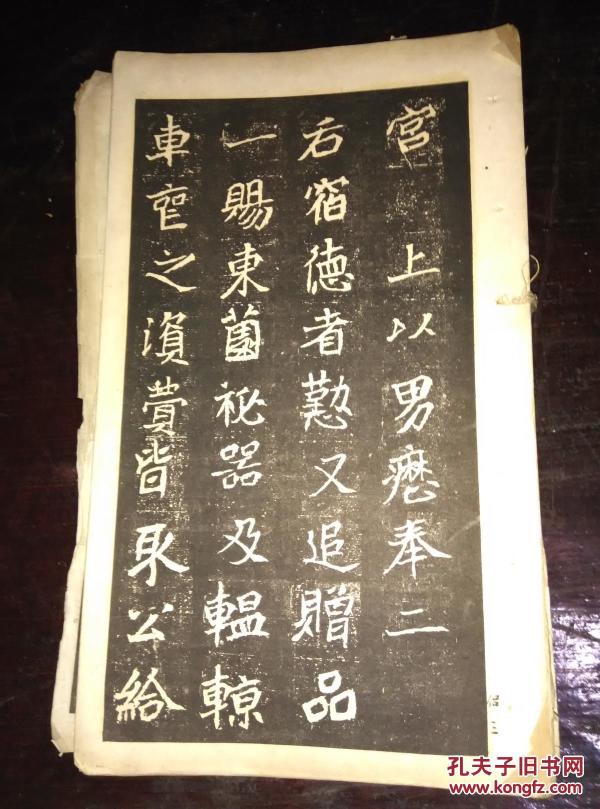 宮　上以男歷奉二
后宿德者懃又追贈品
一賜東薗祕器及轀輬
車之資費皆取公給
孔夫子旧书网
www.kongfz.com